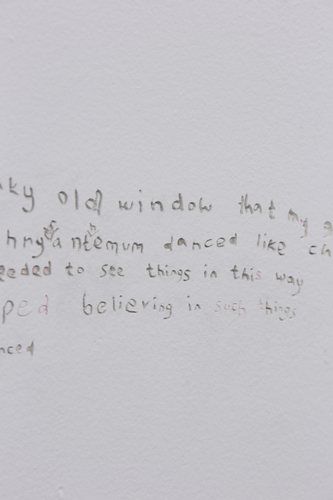 ky old window that my g
hrysanthemum danced like ch
eeded to see things in this way
ped believing in such things
nced